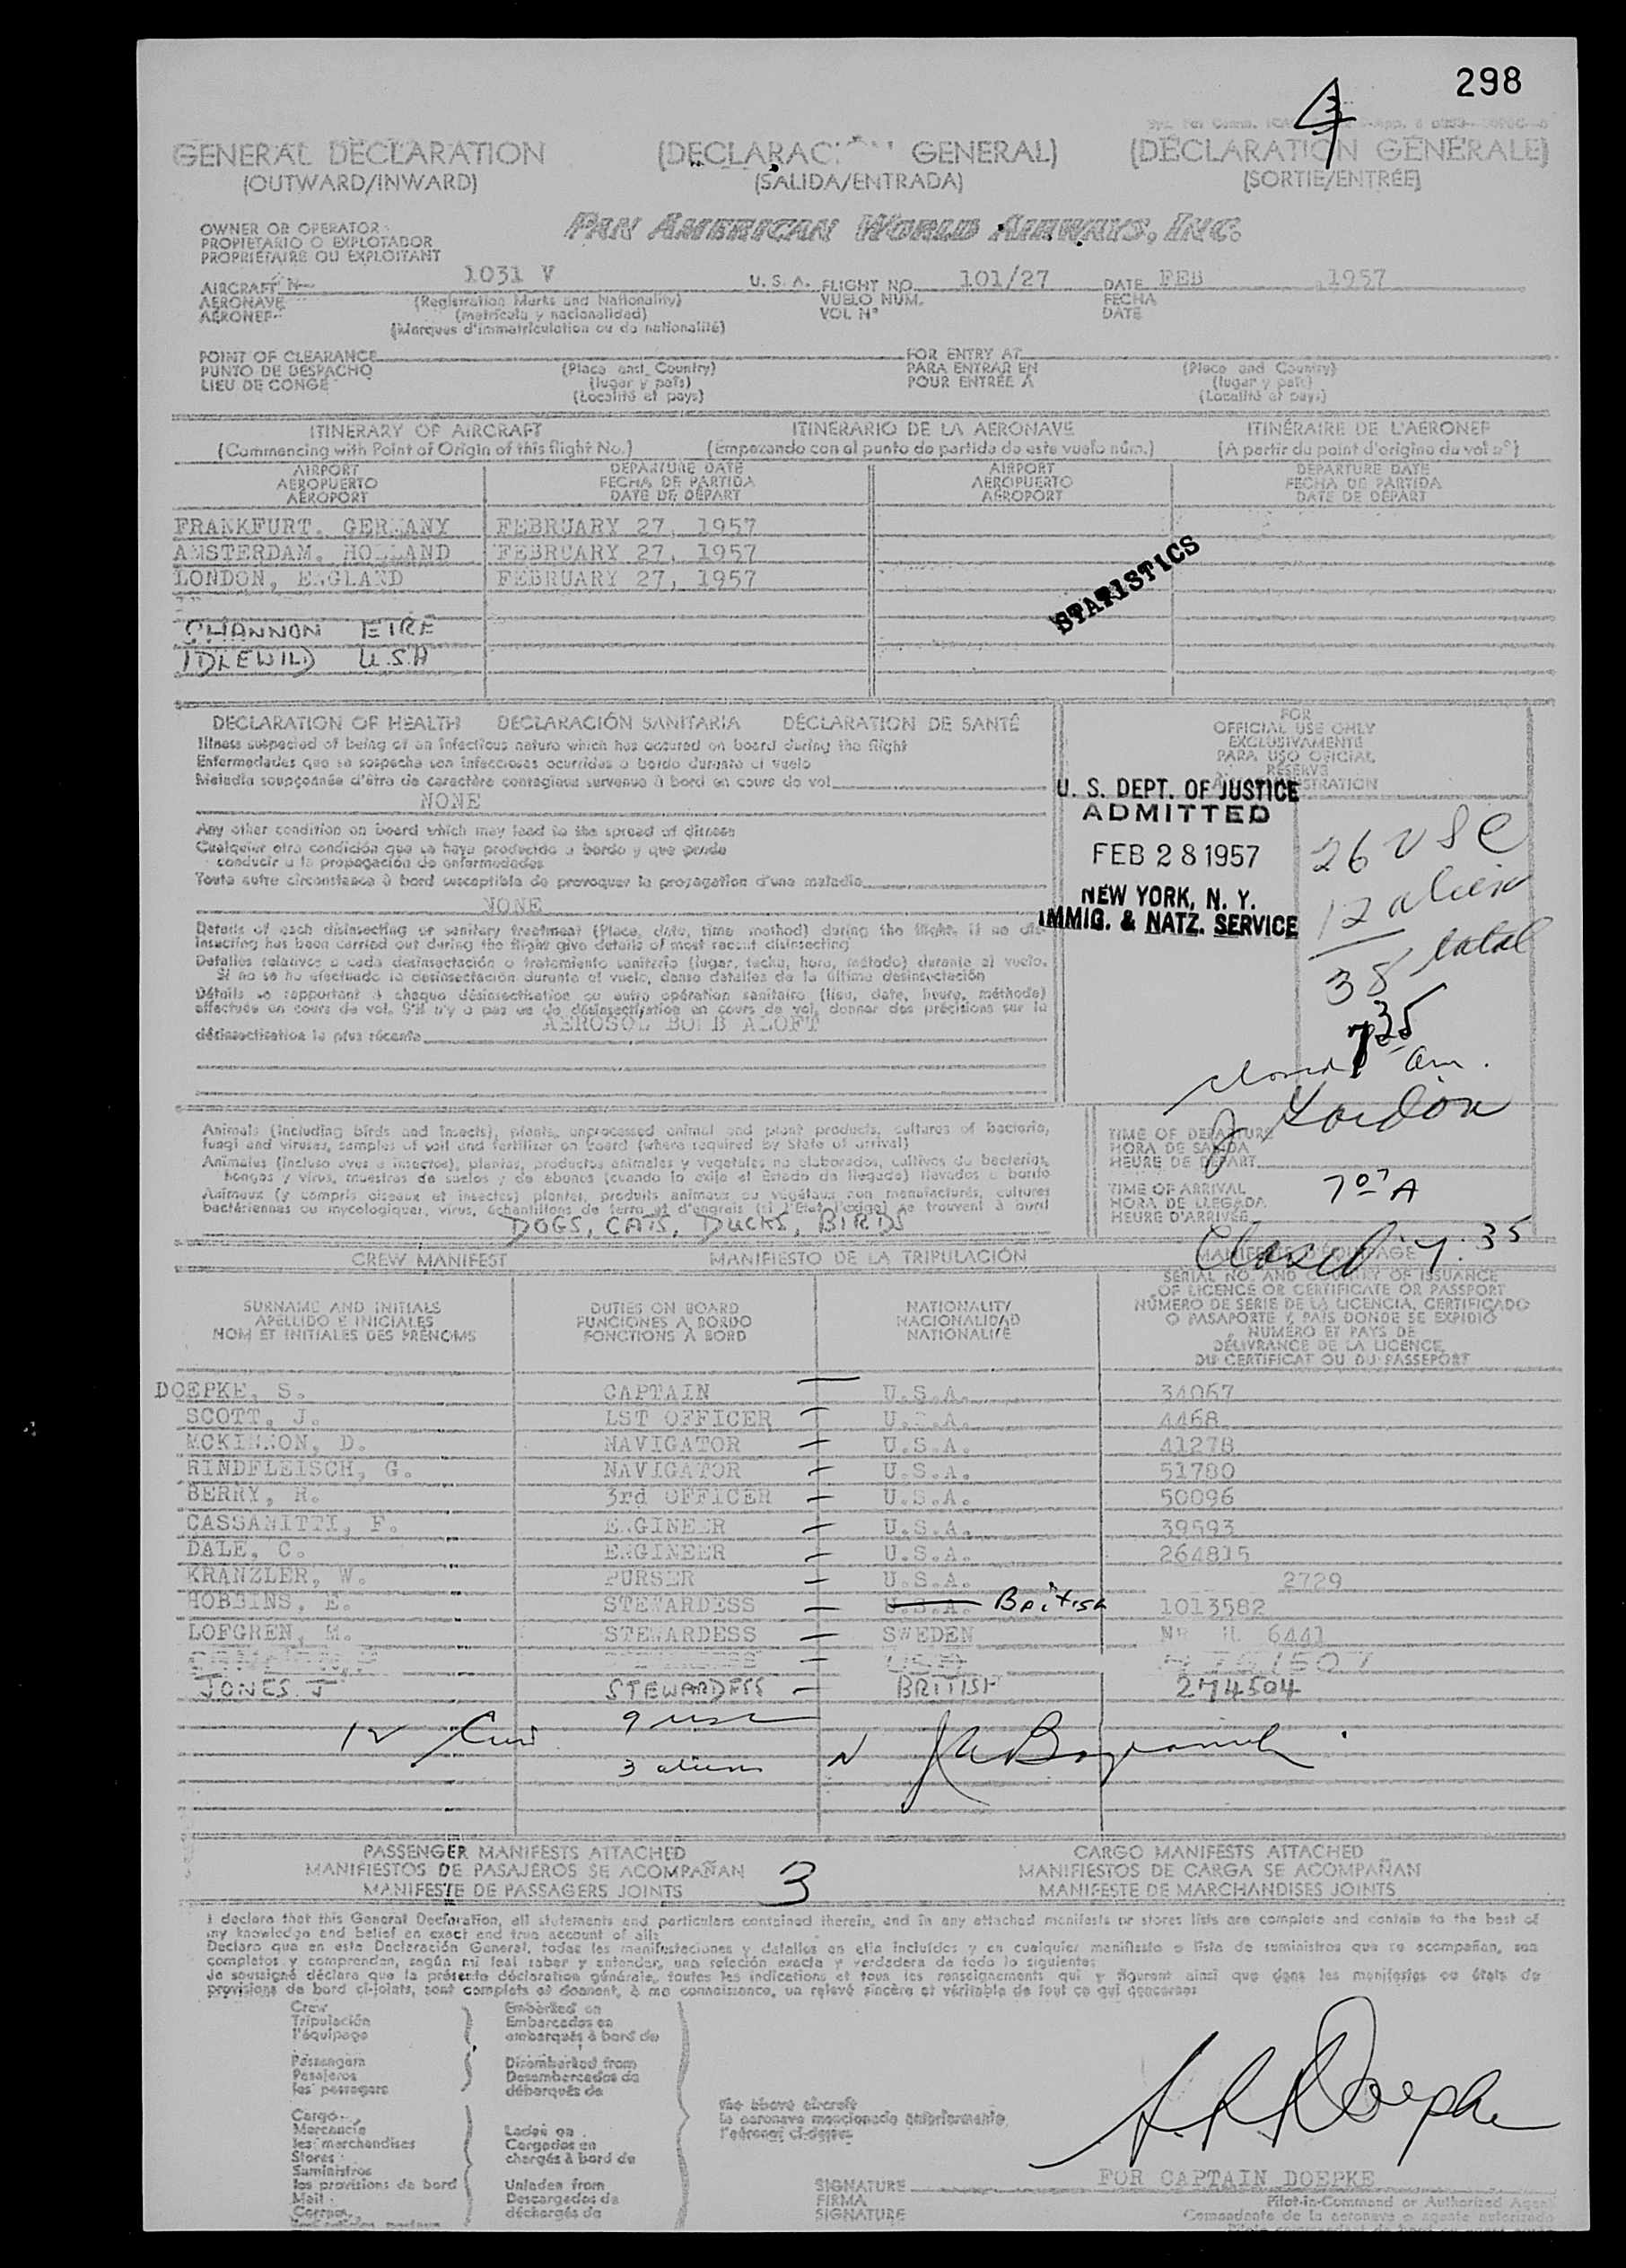 298
GENERAL DECLARATION (DECLARAC GENERAL) (DÉCLARATION GÉNÉRALE)
(OUTWARD/INWARD) (SALIDA/ENTRADA) (SORTIE/ENTRÉE)
OWNER OR OPERATOR PAN AMERICAN WORLD AIRWAYS, INC.
PROPIETARIO O EXPLOTADOR
PROPRIÉTAIRE OU EXPLOITANT
AIRCRAFT N 1031 V U.S.A. FLIGHT NO. 101/27 DATE FEB 1957
AERONAVE (Registration Marks and Nationality) VUELO NÚM. FECHA
AÉRONEF (matrícula y nacionalidad) VOL Nº DATE
(Marques d'immatriculation ou de nationalité)
POINT OF CLEARANCE FOR ENTRY AT
PUNTO DE DESPACHO (Place and Country) PARA ENTRAR EN (Place and Country)
LIEU DE CONGÉ (lugar y país) POUR ENTRÉE À (lugar y país)
(Localité et pays) (Localité et pays)
ITINERARY OF AIRCRAFT ITINERARIO DE LA AERONAVE ITINÉRAIRE DE L'AÉRONEF
(Commencing with Point of Origin of this flight No.) (Empezando con el punto de partida de este vuelo núm.) (A partir du point d'origine du vol nº)
AIRPORT DEPARTURE DATE AIRPORT DEPARTURE DATE
AEROPUERTO FECHA DE PARTIDA AEROPUERTO FECHA DE PARTIDA
AÉROPORT DATE DE DÉPART AÉROPORT DATE DE DÉPART
FRANKFURT, GERMANY FEBRUARY 27, 1957
AMSTERDAM, HOLLAND FEBRUARY 27, 1957
LONDON, ENGLAND FEBRUARY 27, 1957
STATISTICS
SHANNON EIRE
IDLEWILD U.S.A
DECLARATION OF HEALTH DECLARACIÓN SANITARIA DÉCLARATION DE SANTÉ
Illness suspected of being of an infectious nature which has occured on board during the flight
Enfermedades que se sospecha son infecciosas ocurridas a bordo durante el vuelo
Maladie soupçonnée d'être de caractère contagieux survenue à bord en cours de vol
NONE
Any other condition on board which may lead to the spread of disease
Cualquier otra condición que se haya producido a bordo y que pueda
conducir a la propagación de enfermedades
Toute autre circonstance à bord susceptible de provoquer la propagation d'une maladie
NONE
Details of each disinsecting or sanitary treatment (Place, date, time method) during the flight. If no dis-
insecting has been carried out during the flight give details of most recent disinsecting
Detalles relativos a cada desinsectación o tratamiento sanitario (lugar, fecha, hora, método) durante el vuelo.
Si no se ha efectuado la desinsectación durante el vuelo, dense detalles de la última desinsectación
Détails se rapportant à chaque désinsectisation ou autre opération sanitaire (lieu, date, heure, méthode)
effectués en cours de vol. S'il n'y a pas eu de désinsectisation en cours de vol, donner des précisions sur la
AEROSOL BOMB ALOFT
désinsectisation la plus récente
FOR
OFFICIAL USE ONLY
EXCLUSIVAMENTE
PARA USO OFICIAL
RÉSERVÉ
U. S. DEPT. OF JUSTICE
ADMITTED
FEB 28 1957
NEW YORK, N. Y.
IMMIG. & NATZ. SERVICE
26 USC
12 alien
38 total
735
closed am.
J Gordon
Animals (including birds and insects), plants, unprocessed animal and plant products, cultures of bacteria,
fungi and viruses, samples of soil and fertilizer on board (where required by State of arrival)
Animales (incluso aves o insectos), plantas, productos animales y vegetales no elaborados, cultivos de bacterias,
hongos y virus, muestras de suelos y de abonos (cuando lo exija el Estado de llegada) llevados a bordo
Animaux (y compris oiseaux et insectes) plantes, produits animaux ou végétaux non manufacturés, cultures
bactériennes ou mycologiques, virus, échantillons de terre et d'engrais (si l'État l'exige) se trouvent à bord
DOGS, CATS, DUCKS, BIRDS
TIME OF DEPARTURE
HORA DE SALIDA
HEURE DE DÉPART
TIME OF ARRIVAL 7 07 A
HORA DE LLEGADA
HEURE D'ARRIVÉE
Closed 7:35
CREW MANIFEST MANIFIESTO DE LA TRIPULACIÓN
SURNAME AND INITIALS DUTIES ON BOARD NATIONALITY SERIAL NO. AND COUNTRY OF ISSUANCE
APELLIDO E INICIALES FUNCIONES A BORDO NACIONALIDAD OF LICENCE OR CERTIFICATE OR PASSPORT
NOM ET INITIALES DES PRÉNOMS FONCTIONS À BORD NATIONALITÉ NÚMERO DE SERIE DE LA LICENCIA, CERTIFICADO
O PASAPORTE Y PAÍS DONDE SE EXPIDIÓ
NUMÉRO ET PAYS DE
DÉLIVRANCE DE LA LICENCE,
DU CERTIFICAT OU DU PASSEPORT
DOEPKE, S. CAPTAIN U.S.A. 34067
SCOTT, J. 1ST OFFICER U.S.A. 4468
MCKINNON, D. NAVIGATOR U.S.A. 41278
RINDFLEISCH, G. NAVIGATOR U.S.A. 51780
BERRY, R. 3rd OFFICER U.S.A. 50096
CASSANITTI, F. ENGINEER U.S.A. 39593
DALE, C. ENGINEER U.S.A. 264815
KRANZLER, W. PURSER U.S.A. 2729
HOBBINS, E. STEWARDESS U.S.A. British 1013582
LOFGREN, M. STEWARDESS SWEDEN NR 6441
USA
JONES J STEWARDESS BRITISH 274504
12 9 usc
3 aliens
PASSENGER MANIFESTS ATTACHED CARGO MANIFESTS ATTACHED
MANIFIESTOS DE PASAJEROS SE ACOMPAÑAN 3 MANIFIESTOS DE CARGA SE ACOMPAÑAN
MANIFESTE DE PASSAGERS JOINTS MANIFESTE DE MARCHANDISES JOINTS
I declare that this General Declaration, all statements and particulars contained therein, and in any attached manifests or stores lists are complete and contain to the best of
my knowledge and belief an exact and true account of all:
Declaro que en esta Declaración General, todas las manifestaciones y detalles en ella incluídos y en cualquier manifiesto o lista de suministros que se acompañan, son
completos y comprenden, según mi leal saber y entender, una relación exacta y verdadera de todo lo siguiente:
Je soussigné déclare que la présente déclaration générale, toutes les indications et tous les renseignements qui y figurent ainsi que dans les manifestes ou états de
provisions de bord ci-joints, sont complets et donnent, à ma connaissance, un relevé sincère et véritable de tout ce qui concerne:
Crew Embarked on
Tripulación Embarcados en
l'équipage embarqués à bord de
Passengers Disembarked from
Pasajeros Desembarcados de
les passagers débarqués de
Cargo the above aircraft
Mercancía Laden on la aeronave mencionada anteriormente
les marchandises Cargados en l'aéronef ci-dessus
Stores chargés à bord de
Suministros
les provisions de bord Unladen from
Mail Descargados de
Correos déchargés de
SIGNATURE FOR CAPTAIN DOEPKE
FIRMA Pilot-in-Command or Authorized Agent
SIGNATURE Comandante de la aeronave o agente autorizado